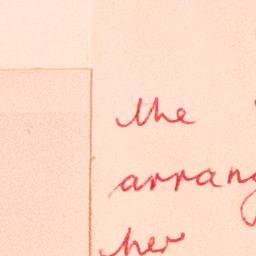 the
arrang
her